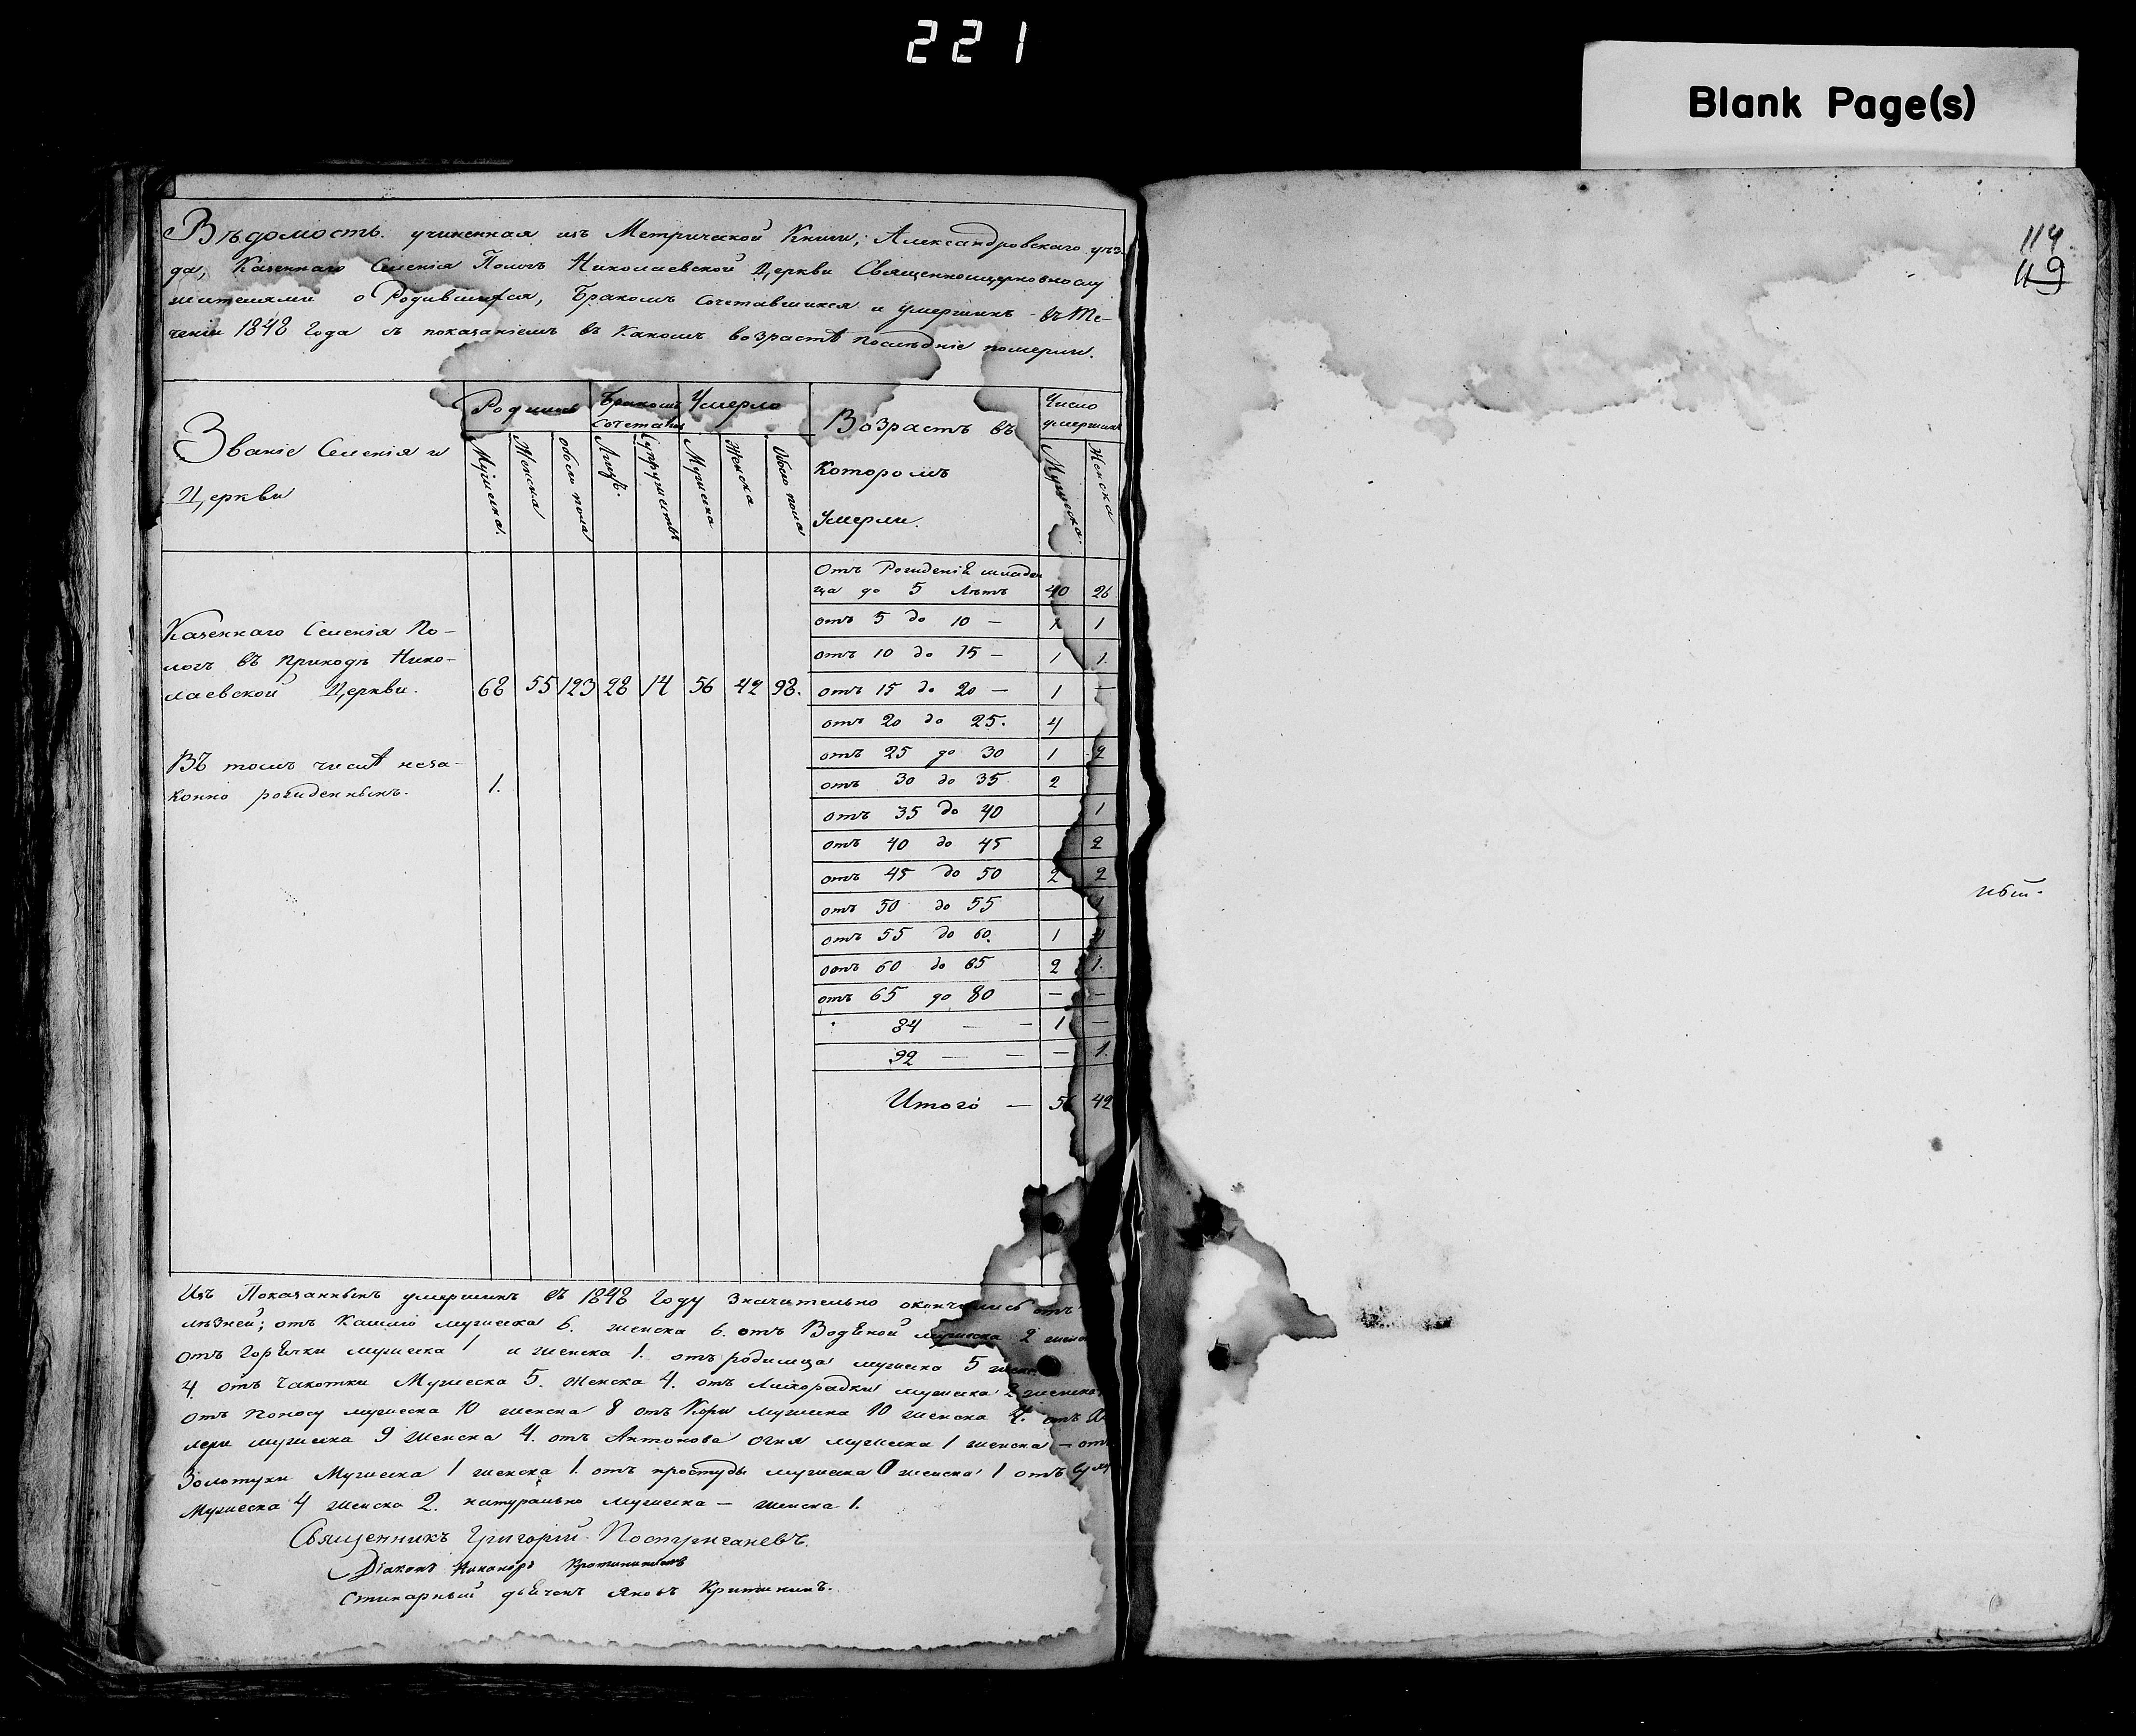 221
Blank Page(s)
114
119
Вѣдомость учиненная изъ Метрической Книги, Александровскаго уѣз-
да, Казеннаго Селенія Пологъ Николаевской Церкви Священноцерковнослу
жителями о Родившихся, Бракомъ Сочетавшихся и умершихъ въ Те-
ченіи 1848 Года съ показаніемъ въ какомъ возрастѣ послѣдніе померли.
Званіе Селенія и
Церкви
Родились
Бракомъ Сочетались
Умерло
Возрастъ въ
которомъ
Умерли.
Число
умершихъ
Мужеска.
Женска
обоего пола
Лицъ.
Супружествъ
Мужеска
Женска
Обоего пола
Мужеска.
Женска
Отъ Рожденія младен
ца до 5 лѣтъ 40 26
отъ 5 до 10 — 1 1
отъ 10 до 15 — 1 1.
Казеннаго Селенія По-
логъ въ приходѣ Нико-
лаевской Церкви. 68 55 123 28 14 56 42 98.
отъ 15 до 20 — 1 —
отъ 20 до 25. 4
отъ 25 до 30 1 2
Въ томъ числѣ неза-
конно рожденныхъ. 1.
отъ 30 до 35 2
отъ 35 до 40 1
отъ 40 до 45 2
отъ 45 до 50 2 2
отъ 50 до 55
отъ 55 до 60. 1
отъ 60 до 65 2 1.
отъ 65 до 80 — —
84 — — 1 —
92 — — — 1.
Итого — 56 42
Изъ Показанныхъ умершихъ въ 1848 Году значительно окончились отъ
лѣзней; отъ Кашлю мужеска 6. женска 6. отъ Водяной мужеска 2
отъ Горячки мужеска 1 и женска 1. отъ родимца мужеска 5
4. отъ Чахотки Мужеска 5. Женска 4. отъ Лихорадки мужеска 2 женска
отъ Поносу мужеска 10 женска 8 отъ Кори мужеска 10 женска 4. отъ
лери мужеска 9 женска 4. отъ Антонова огня мужеска 1 женска — отъ
Золотухи Мужеска 1 женска 1. отъ простуды мужеска 0 женска 1 отъ
Мужеска 4 женска 2. натурально мужеска — женска 1.
Священникъ Григорій
Діаконъ Никаноръ
Стихарный дьячекъ Яковъ